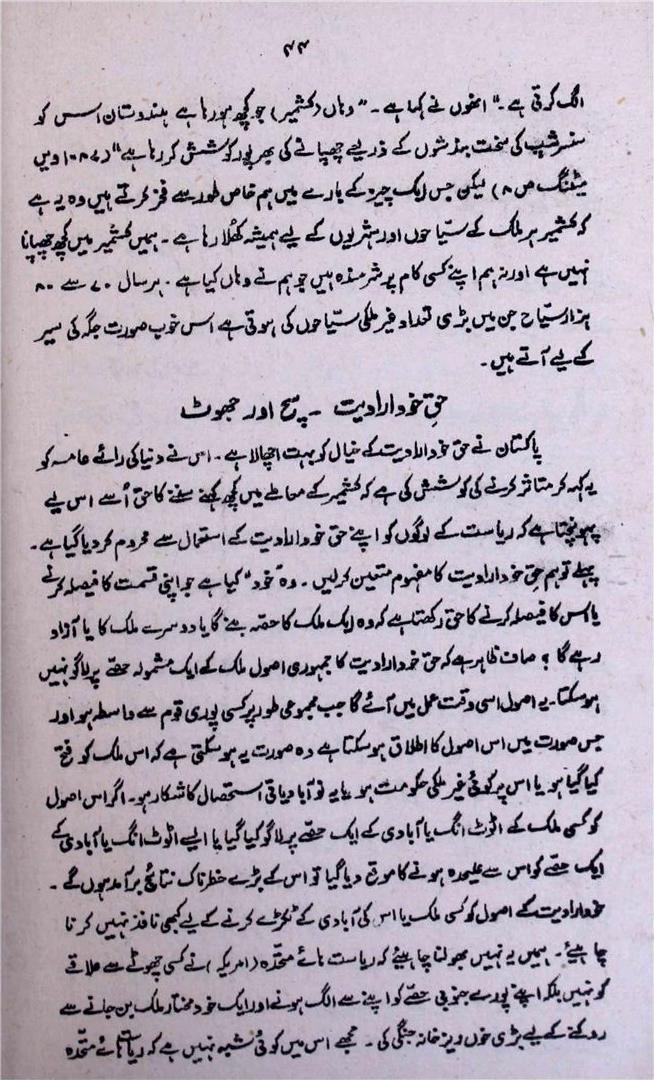 ۴۴
الگ کرتی ہے۔" انھوں نے کہا ہے۔ "وہاں (کشمیر) جو کچھ ہو رہا ہے ہندوستان اس کو
سنسرشپ کی سخت بندشوں کے ذریعے چھپانے کی بھرپور کوشش کر رہا ہے" (۱۰۸۷ ویں
میٹنگ ص ۸) لیکن جس ایک چیز کے بارے میں ہم خاص طور سے فخر کرتے ہیں وہ یہ ہے
کہ کشمیر ہر ملک کے سیّاحوں اور شہریوں کے لیے ہمیشہ کھُلا رہا ہے۔ ہمیں کشمیر میں کچھ چھپانا
نہیں ہے اور نہ ہم اپنے کسی کام پر شرمندہ ہیں جو ہم نے وہاں کیا ہے۔ ہر سال ۷۰ سے ۸۰
ہزار سیّاح جن میں بڑی تعداد غیر ملکی سیّاحوں کی ہوتی ہے اس خوب صورت جگہ کی سیر
کے لیے آتے ہیں۔
حقِ خود ارادیت ۔ سچ اور جھوٹ
پاکستان نے حق خود ارادیت کے خیال کو بہت اچھالا ہے۔ اس نے دنیا کی رائے عامہ کو
یہ کہہ کر متاثر کرنے کی کوشش کی ہے کہ کشمیر کے معاملے میں کچھ کہنے سننے کا حق اُسے اس لیے
پہونچتا ہے کہ ریاست کے لوگوں کو اپنے حق خود ارادیت کے استعمال سے محروم کر دیا گیا ہے۔
پہلے تو ہم حقِ خود ارادیت کا مفہوم متعین کر لیں۔ وہ "خود" کیا ہے جو اپنی قسمت کا فیصلہ کرنے
یا اس کا فیصلہ کرنے کا حق رکھتا ہے کہ وہ ایک ملک کا حصّہ بنے گا یا دوسرے ملک کا یا آزاد
رہے گا؟ صاف ظاہر ہے کہ حق خود ارادیت کا جمہوری اصول ملک کے ایک مشمولہ حصّے پر لاگو نہیں
ہو سکتا۔ یہ اصول اسی وقت عمل میں آئے گا جب مجموعی طور پر کسی پوری قوم سے واسطہ ہو اور
جس صورت میں اس اصول کا اطلاق ہو سکتا ہے وہ صورت یہ ہو سکتی ہے کہ اس ملک کو فتح
کیا گیا ہو یا اس پر کوئی غیر ملکی حکومت ہو یا یہ نوآبادیاتی استحصال کا شکار ہو۔ اگر اس اصول
کو کسی ملک کے اٹوٹ انگ یا آبادی کے ایک حصّے پر لاگو کیا گیا یا ایسے اٹوٹ انگ یا آبادی کے
ایک حصّے کو اس سے علیحدہ ہونے کا موقع دیا گیا تو اس کے بڑے خطرناک نتائج برآمد ہوں گے۔
خود ارادیت کے اصول کو کسی ملک یا اس کی آبادی کے ٹکڑے کرنے کے لیے کبھی نافذ نہیں کرنا
چاہیئے۔ ہمیں یہ نہیں بھولنا چاہیئے کہ ریاست ہائے متحّدہ (امریکہ) نے کسی چھوٹے سے علاقے
کو نہیں بلکہ اپنے پورے جنوبی حصّے کو اپنے سے الگ ہونے اور ایک خود مختار ملک بن جانے سے
روکنے کے لیے بڑی خوں ریز خانہ جنگی کی۔ مجھے اس میں کوئی شبہ نہیں ہے کہ ریاست ہائے متحّدہ